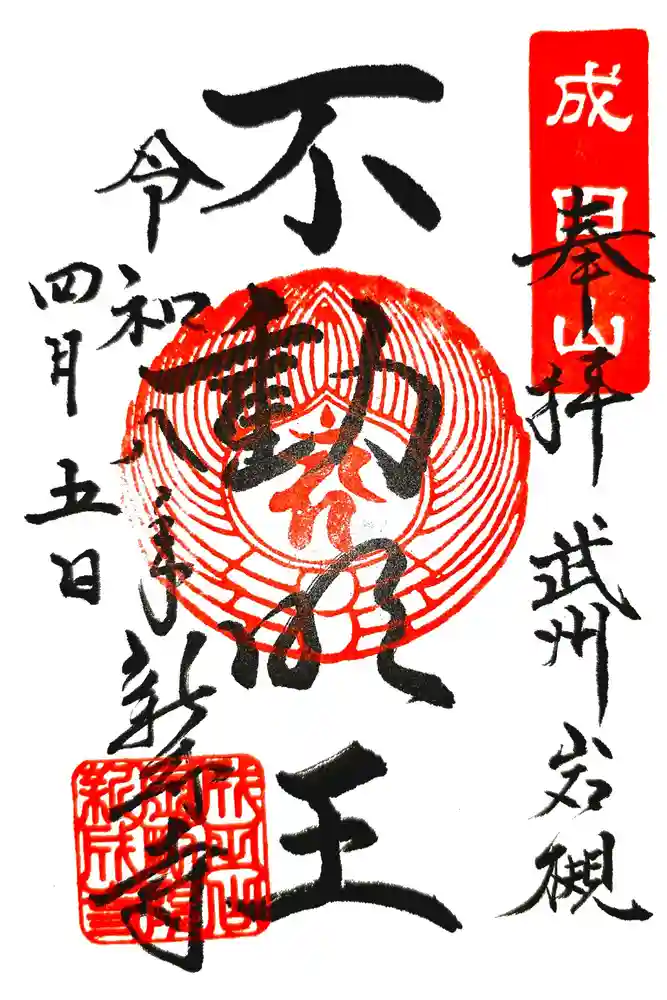 成田山
奉拝 武州岩槻
不動明王
令和八年
四月五日